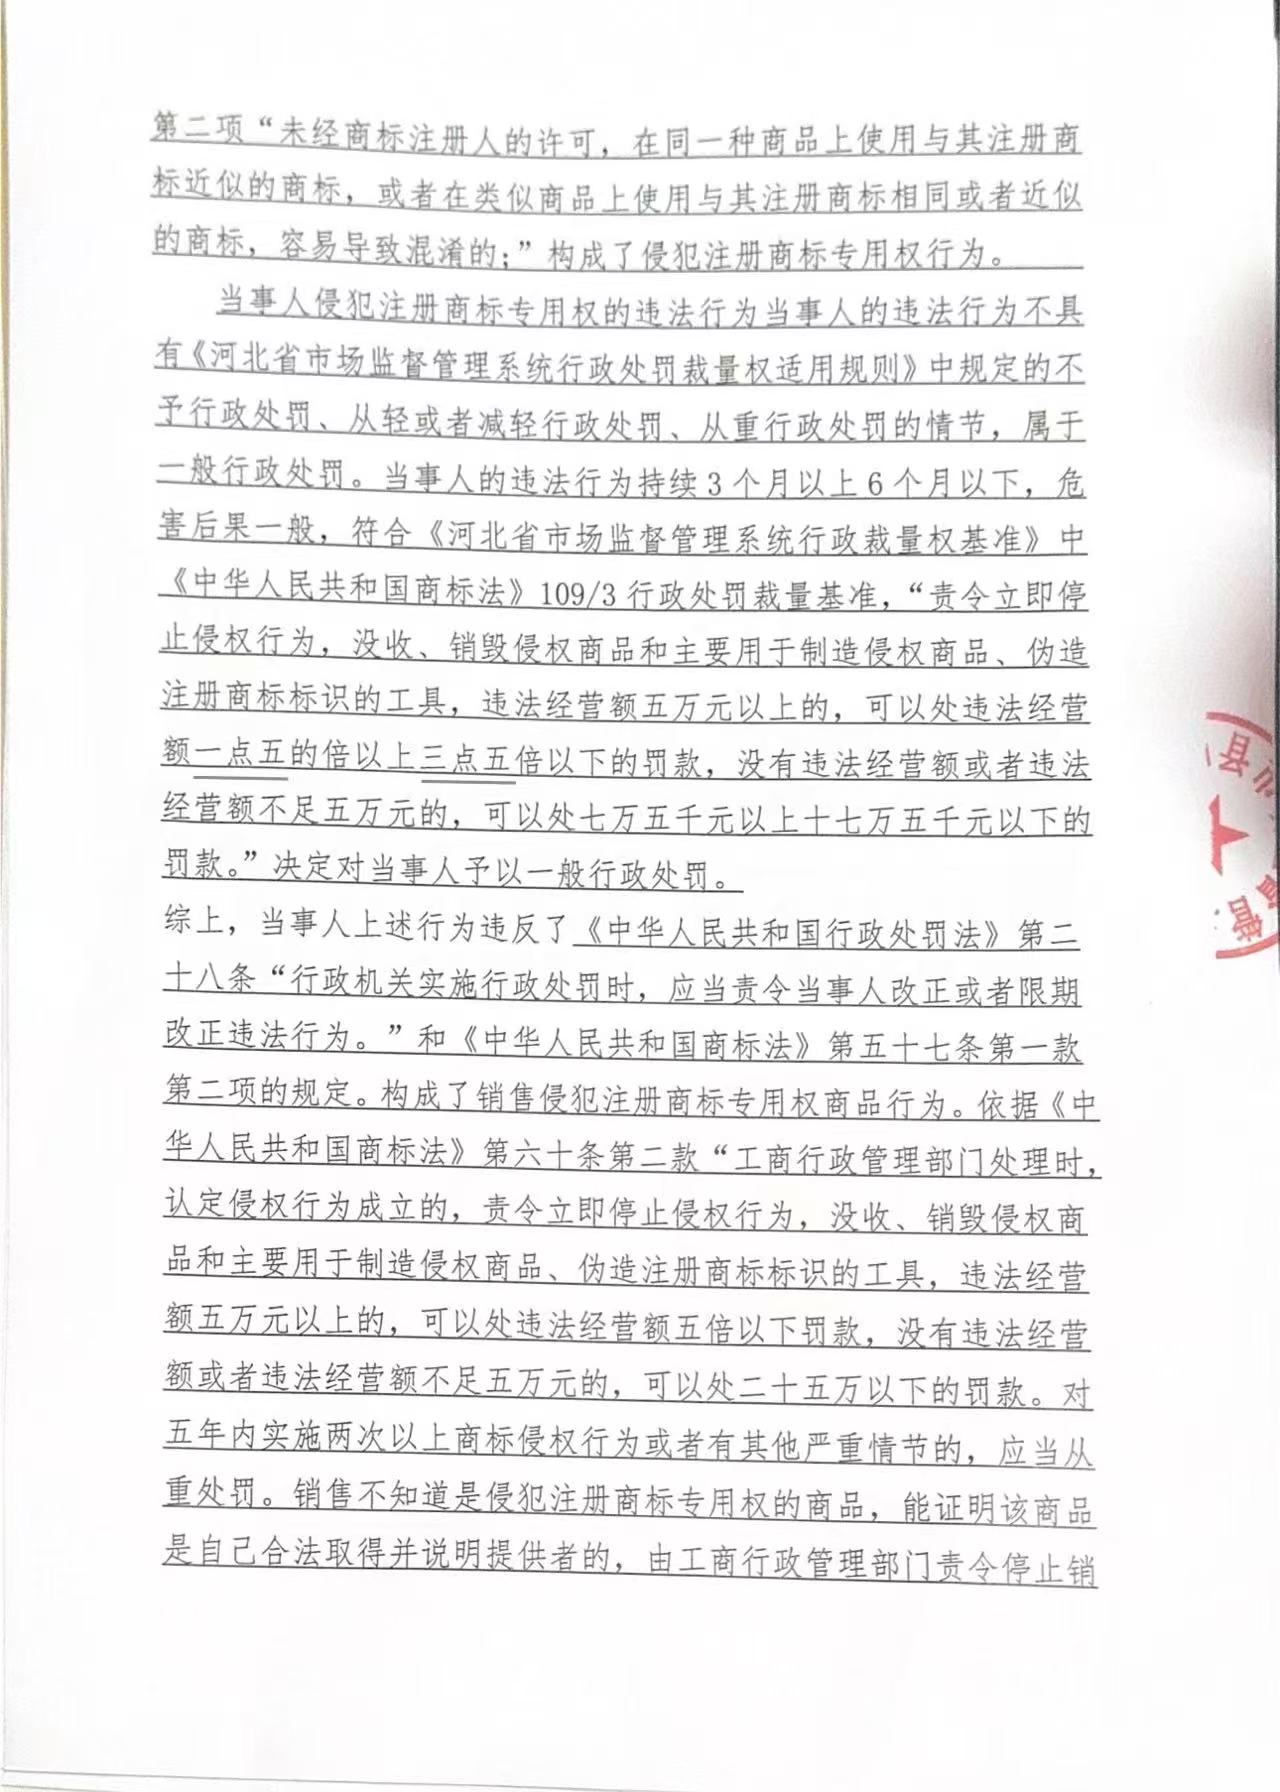 第二项“未经商标注册人的许可，在同一种商品上使用与其注册商
标近似的商标，或者在类似商品上使用与其注册商标相同或者近似
的商标，容易导致混淆的；”构成了侵犯注册商标专用权行为。
当事人侵犯注册商标专用权的违法行为当事人的违法行为不具
有《河北省市场监督管理系统行政处罚裁量权适用规则》中规定的不
予行政处罚、从轻或者减轻行政处罚、从重行政处罚的情节，属于
一般行政处罚。当事人的违法行为持续3个月以上6个月以下，危
害后果一般，符合《河北省市场监督管理系统行政裁量权基准》中
《中华人民共和国商标法》109/3行政处罚裁量基准，“责令立即停
止侵权行为，没收、销毁侵权商品和主要用于制造侵权商品、伪造
注册商标标识的工具，违法经营额五万元以上的，可以处违法经营
额一点五的倍以上三点五倍以下的罚款，没有违法经营额或者违法
经营额不足五万元的，可以处七万五千元以上十七万五千元以下的
罚款。”决定对当事人予以一般行政处罚。
综上，当事人上述行为违反了《中华人民共和国行政处罚法》第二
十八条“行政机关实施行政处罚时，应当责令当事人改正或者限期
改正违法行为。”和《中华人民共和国商标法》第五十七条第一款
第二项的规定。构成了销售侵犯注册商标专用权商品行为。依据《中
华人民共和国商标法》第六十条第二款“工商行政管理部门处理时，
认定侵权行为成立的，责令立即停止侵权行为，没收、销毁侵权商
品和主要用于制造侵权商品、伪造注册商标标识的工具，违法经营
额五万元以上的，可以处违法经营额五倍以下罚款，没有违法经营
额或者违法经营额不足五万元的，可以处二十五万以下的罚款。对
五年内实施两次以上商标侵权行为或者有其他严重情节的，应当从
重处罚。销售不知道是侵犯注册商标专用权的商品，能证明该商品
是自己合法取得并说明提供者的，由工商行政管理部门责令停止销
县